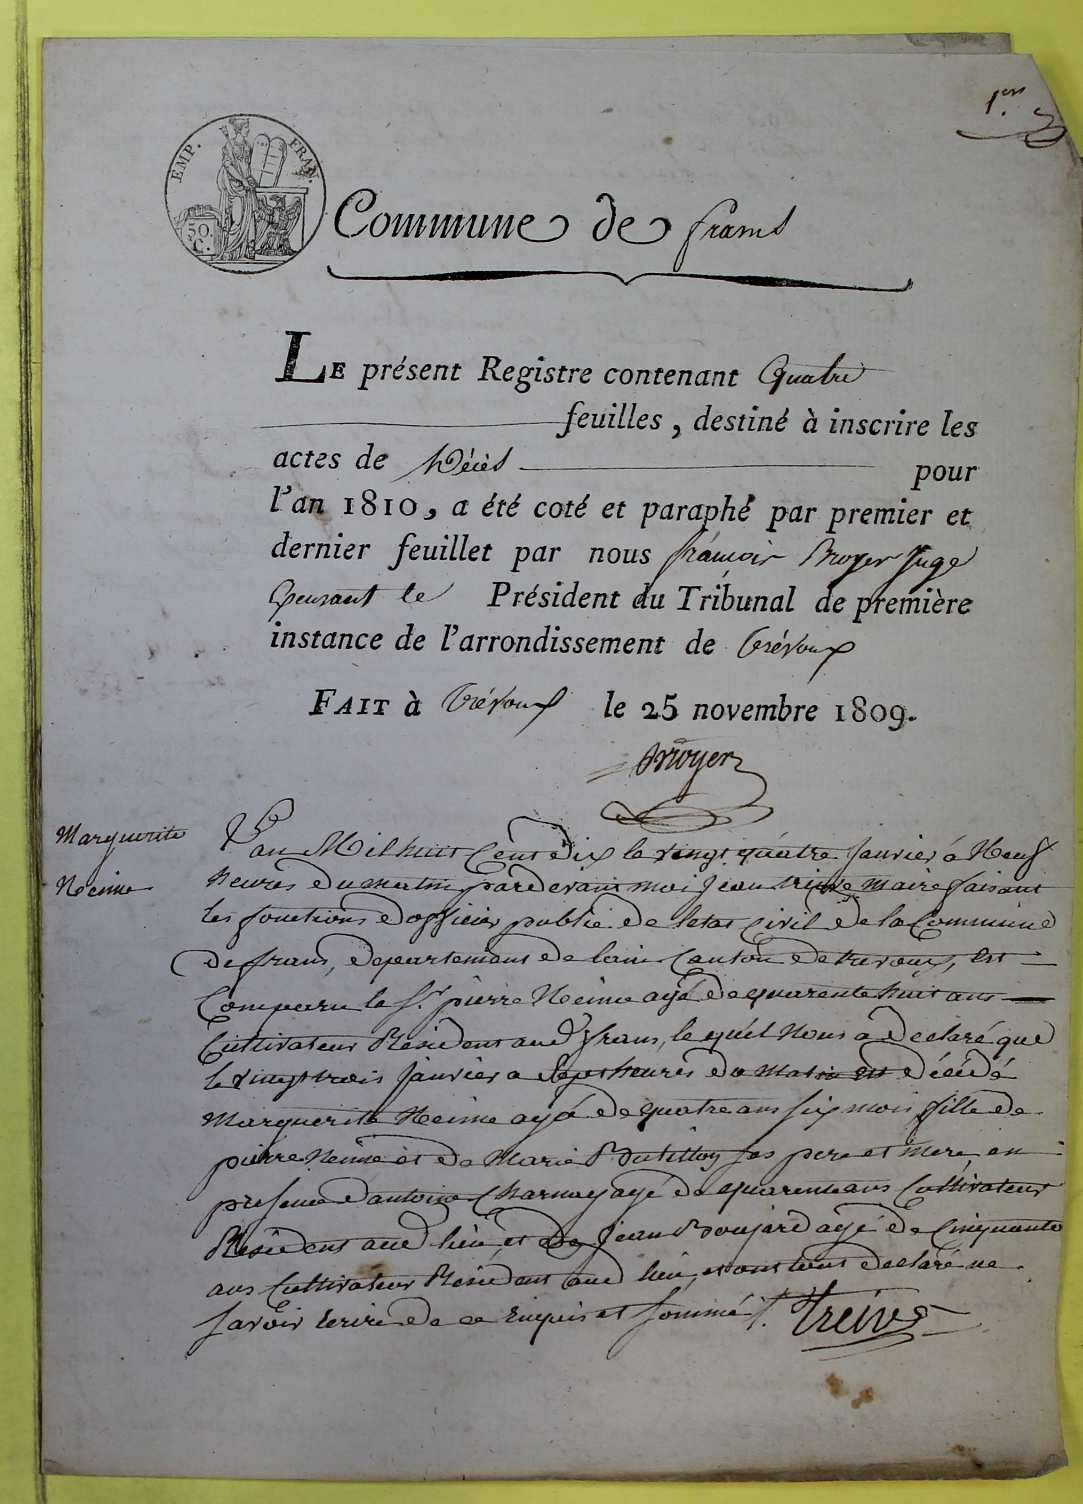 1.er
EMP. FRAN.
50.
C.
Commune de frans
LE présent Registre contenant Quatre
feuilles, destiné à inscrire les
actes de Décès pour
l'an 1810, a été coté et paraphé par premier et
dernier feuillet par nous françois Broyer Juge
Président du Tribunal de première
instance de l'arrondissement de Trévoux
FAIT à Trévoux le 25 novembre 1809.
Broyer
Marguerite
Neime
L'an Mil huit Cent Dix le vingt quatre Janvier à Neuf
heures du matin pardevant moi Jean treive Maire faisant
les fonctions d'officier public de letat Civil de la Commune
de frans, departement de lain Canton de trevoux, Est
Comparu le Sr. pierre Neime ayé de quarente huit ans
Cultivateur Résident aud frans, le quel Nous a declaré que
le vingt trois Janvier a Sept heures du Matin est décédé
Marguerite Neime ayé de quatre ans six mois fille de
pierre Neime et de Marie ses pere et mere, en
presence dantoine Charnay ayé de quarente ans Cultivateur
Résident aud lieu, et de Jean Boujard ayé de Cinquante
ans Cultivateur Résident aud lieu, et ont tous declaré ne
savoir ecrire de ce Enquis et sommé
Treive